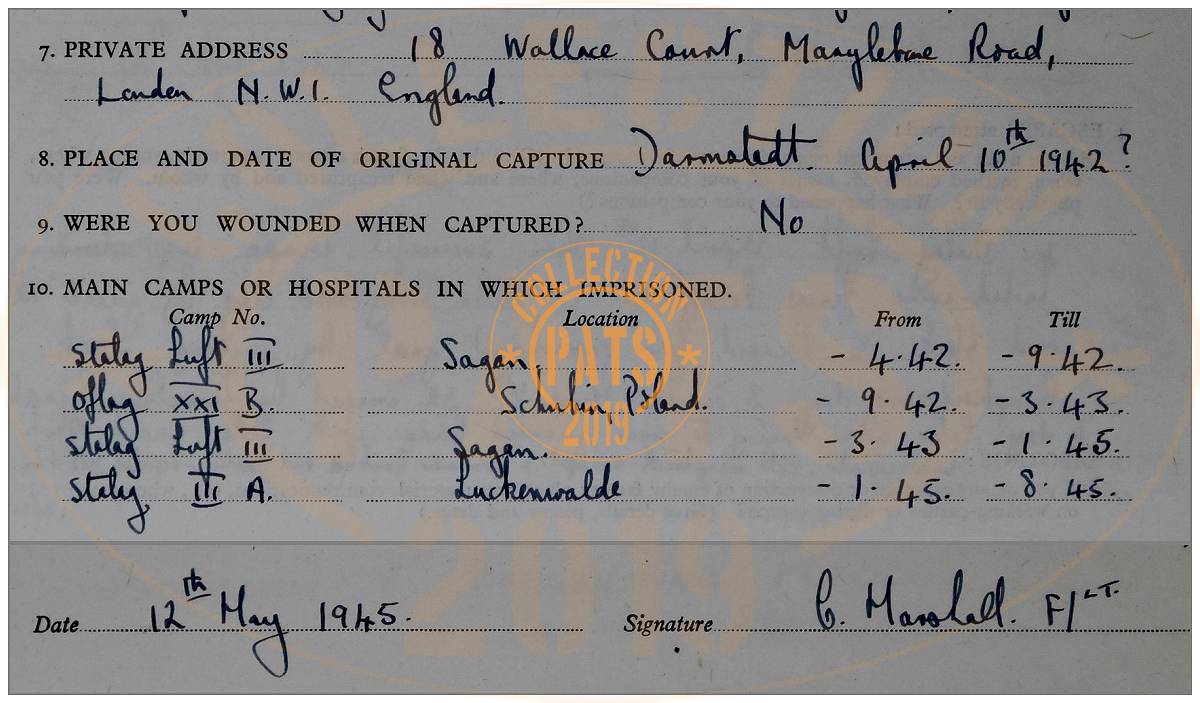 7. PRIVATE ADDRESS 18 Wallace Court, Marylebone Road,
London N.W.1. England.
8. PLACE AND DATE OF ORIGINAL CAPTURE Darmstadt. April 10th 1942?
9. WERE YOU WOUNDED WHEN CAPTURED? No
10. MAIN CAMPS OR HOSPITALS IN WHICH IMPRISONED.
Camp No. Location From Till
Stalag Luft III Sagan. - 4.42. - 9.42.
Oflag XXI B. Schubin, Poland. - 9.42. - 3.43.
Stalag Luft III Sagan. - 3.43 - 1.45.
Stalag III A. Luckenwalde - 1.45. - 8.45.
Date 12th May 1945. Signature C. Marshall. F/LT.
COLLECTION
PATS
2019